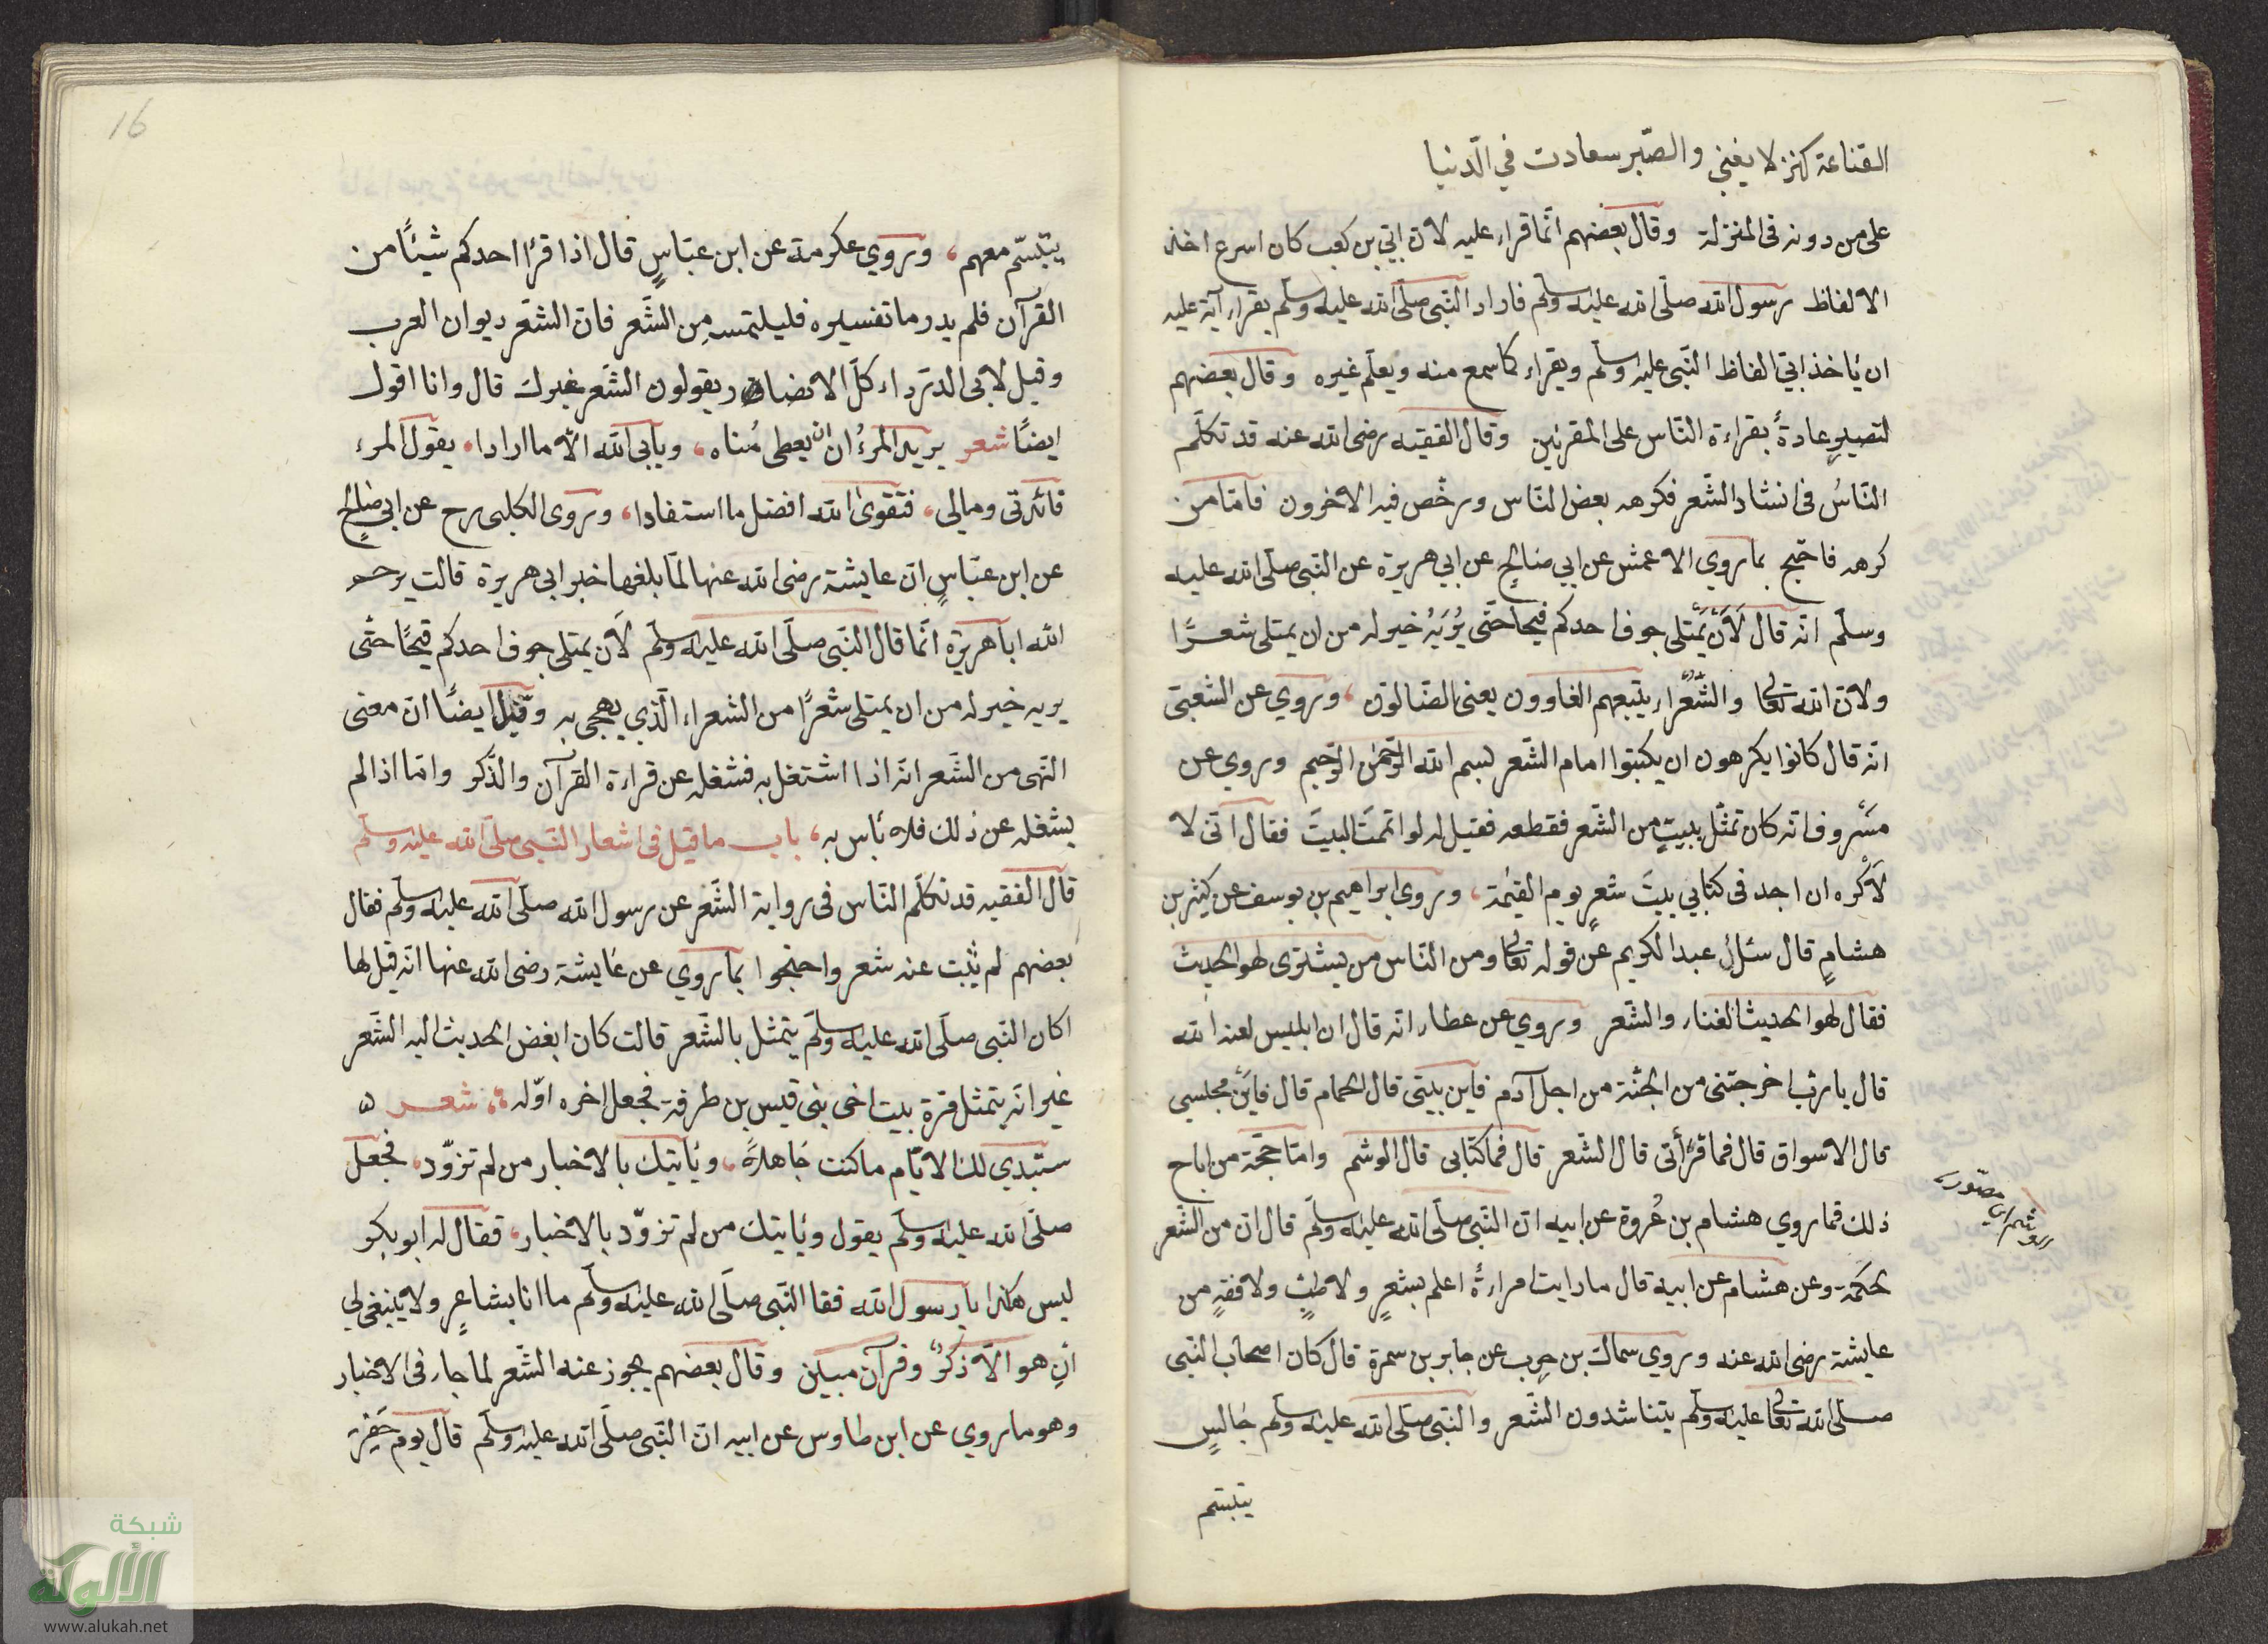 القناعة كنز لا يفنى والصّبر سعادت في الدّنيا
على من دونه في المنزلة وقال بعضهم انّما قراء عليه لانّ ابيّ بن كعب كان اسرع اخذ
الالفاظ رسول الله صلّى الله عليه وسلّم فاراد النّبي صلّى الله عليه وسلّم بقراء آية عليه
ان ياخذ ابيّ الفاظ النّبي عليه وسلّم ويقراء كما سمع منه ويعلّم غيره وقال بعضهم
لتصير عادةً بقراءة النّاس على المقرئين وقال الفقيه رضى الله عنه قد تكلّم
النّاسُ فى انشاد الشّعر فكرهه بعض النّاس ورخّص فيه الاخرون فامّا من
كرهه فاحتج بما روي الاعمش عن ابي صالحٍ عن ابي هريرة عن النّبي صلّى الله عليه
وسلّم انّه قال لَاَنْ يَمْتلي جوف احدكم قيحًا حتّى يُرِيَهُ خير له من ان يمتلى شعرًا
ولانّ الله تعالى والشُّعَراء يتّبعهم الغاوون يعنى الضّالّون، وروي عن الشّعبيّ
انّه قال كانوا يكرهون ان يكتبوا امام الشّعر بسم الله الرّحمن الرّحيم وروي عن
مَسْروف انّه كان تمثّل ببيتٍ من الشّعر فقطعه فقيل له لو اتممت البيتَ فقال انّى لا
لَاَكْره ان اجد فى كتابي بيتَ شعرٍ يوم القيٰمة، وروي ابراهيم بن يوسف عن كثير بن
هشامٍ قال سئل عبد الكريم عن قوله تعالى ومن النّاس من يشترى لهو الحديث
فقال لهو الحديث الغناء والشّعر وروي عن عطاء انّه قال ان ابليس لعنه الله
قال يا ربّ اخرجتنى من الجنّة من اجل آدم فاين بيتى قال الحمام قال فاَيْنَ مجلسي
قال الاسواق قال فما قرأتى قال الشّعر قال فما كتابى قال الوشم وامّا حجّة من اباح
ذلك فما روي هشام بن عُروة عن ابيه انّ النّبي صلّى الله عليه وسلّم قال انّ من الشّعر
لحكمة وعن هشام عن ابيه قال ما رايت امراءةً اعلم بشعرٍ ولا طبٍّ ولا فقهٍ من
عايشة رضى الله عنه وروي سماك بن حرب عن جابر بن سمرة قال كان اصحاب النّبي
صلّى الله تعالى عليه وسلّم يتناشدون الشّعر والنّبي صلّى الله عليه وسلّم جالسٍ
يتبسّم
16
يتبسّم معهم، وروي عكرمة عن ابن عبّاسٍ قال اذا قرأ احدكم شيئًا من
القرآن فلم يدر ما تفسيره فليلتمسه مِن الشّعر فانّ الشّعر ديوان العرب
وقيل لابى الدّرداء كلّ الانصار يقولون الشّعر غيرك قال وانا اقول
ايضًا شعر يريد المرءُ ان يعطى مُناه، ويابى الله الّا ما ارادا، يقول المرء
فائدتى ومالى، فتقوى الله افضل ما استفادا، وروى الكلبى رح عن ابي صالحٍ
عن ابن عبّاسٍ انّ عايشة رضى الله عنها لمّا بلغها خبر ابى هريرة قالت يرحم
الله ابا هريرة انّما قال النّبي صلّى الله عليه وسلّم لَان يمتلى جوف احدكم قيحًا حتّى
يريه خير له من ان يمتلى شعرًا من الشعراء الّذي يهجى به وقيل ايضًا انّ معنى
النّهى من الشّعر انّه اذا اشتغل به فشغله عن قراءة القرآن والذّكر وامّا اذا لم
يشغله عن ذلك فلا باس به، باب ما قيل فى اشعار النّبي صلّى الله عليه وسلّم
قال الفقيه قد تكلّم النّاس فى رواية الشّعر عن رسول الله صلّى الله عليه وسلّم فقال
بعضهم لم يثبت عنه شعر واحتجوا بما روي عن عايشة رضى الله عنها انّه قيل لها
اكان النّبي صلّى الله عليه وسلّم يتمثل بالشّعر قالت كان ابغض الحديث اليه الشّعر
غير انّه يتمثل مرة بيت اخى بنى قيس بن طرفة فجعل اخره اوّله شعر
ستبدي لك الايّام ما كنت جاهلاً، ويأتيك بالاخبار من لم تزوّد، فجعل
صلّى الله عليه وسلّم يقول ويأتيك من لم تزوّد بالاخبار، فقال له ابو بكر
ليس هكذا يا رسول الله فقا النّبي صلّى الله عليه وسلّم ما انا بشاعرٍ ولا ينبغي لي
اِن هو الّا ذكرٌ وقرآن مبين وقال بعضهم يجوز عنه الشّعر لما جاء فى الاخبار
وهو ما روي عن ابن طاوس عن ابيه انّ النّبي صلّى الله عليه وسلّم قال يوم حفر
شبكة
الألوكة
www.alukah.net